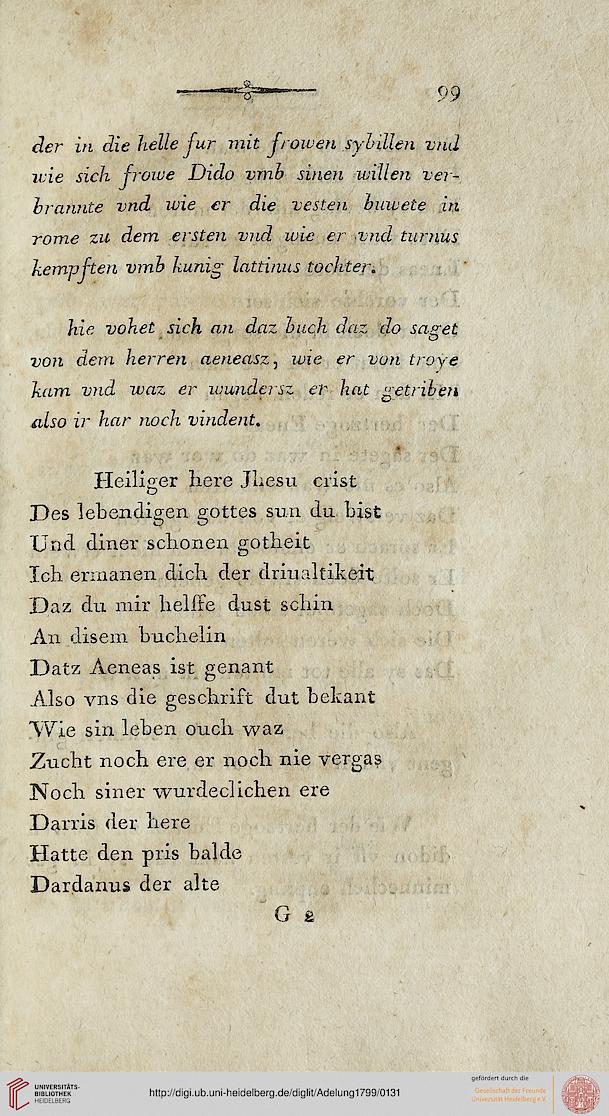 99
der in die helle fur mit frowen sybillen vnd
wie sich frowe Dido vmb sinen willen ver-
brannte vnd wie er die vesten buwete in
rome zu dem ersten vnd wie er vnd turnus
kempften vmb kunig lattinus tochter.
hie vohet sich an daz buch daz do saget
von dem herren aeneasz, wie er von troye
kam vnd waz er wundersz er hat getriben
also ir har noch vindent.
Heiliger here Jhesu crist
Des lebendigen gottes sun du bist
Und diner schonen gotheit
Ich ermanen dich der driualtikeit
Daz du mir helffe dust schin
An disem buchelin
Datz Aeneas ist genant
Also vns die geschrift dut bekant
Wie sin leben ouch waz
Zucht noch ere er noch nie vergas
Noch siner wurdeclichen ere
Darris der here
Hatte den pris balde
Dardanus der alte
G 2
UNIVERSITÄTS-
BIBLIOTHEK
HEIDELBERG
http://digi.ub.uni-heidelberg.de/diglit/Adelung1799/0131
gefördert durch die
Gesellschaft der Freunde
Universität Heidelberg e.V.